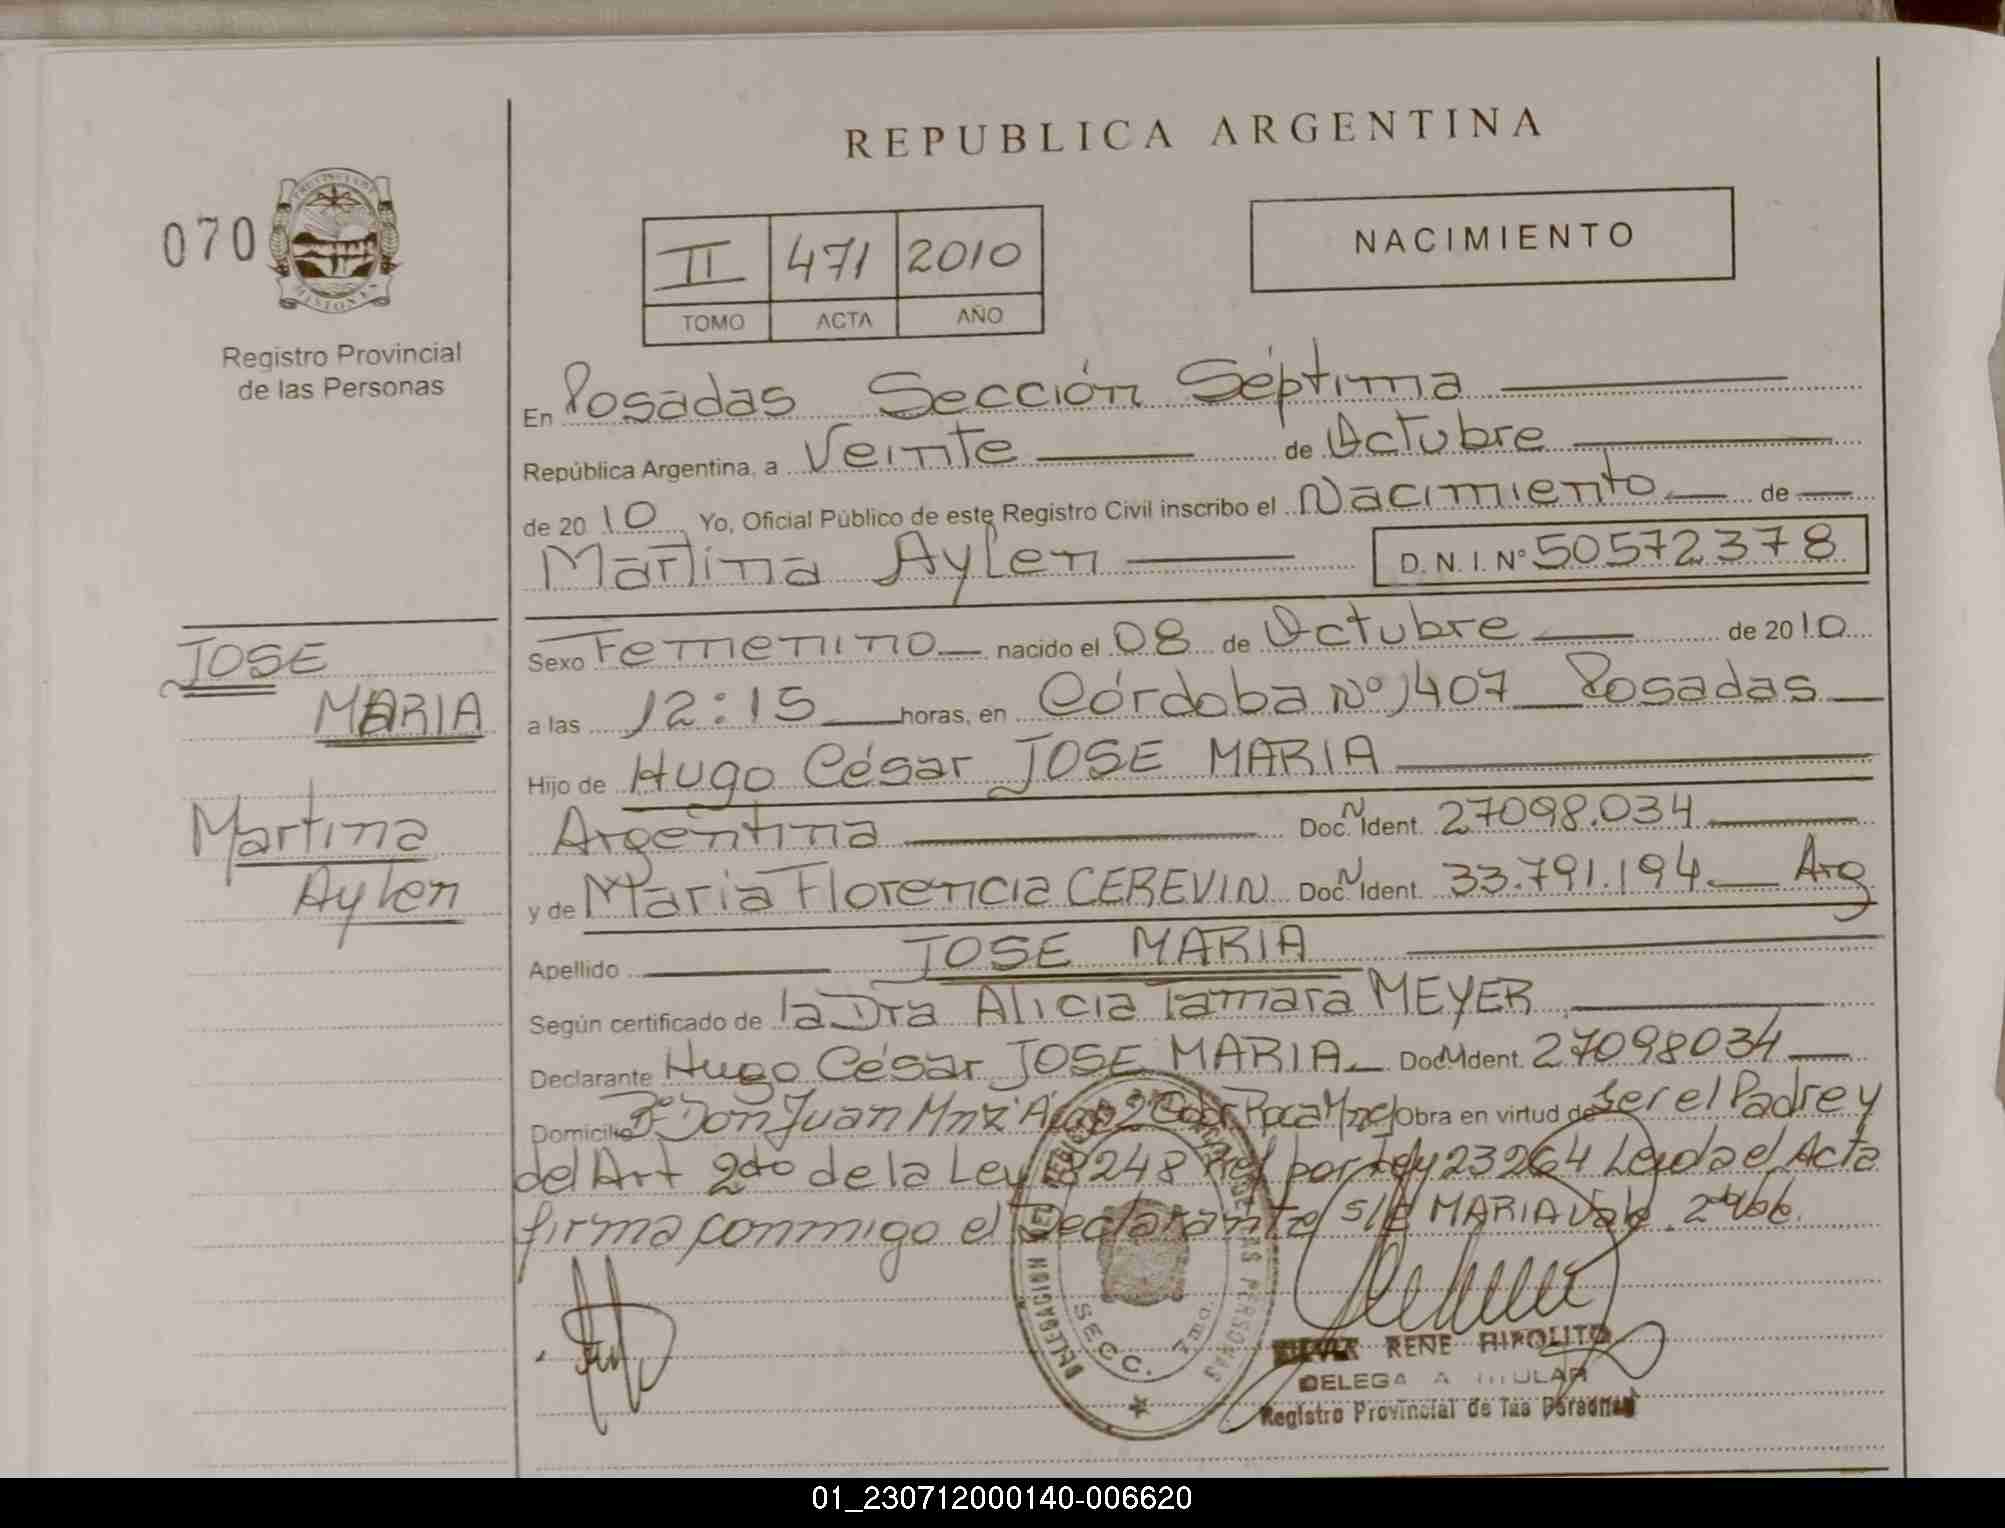 REPUBLICA ARGENTINA
070
PROVINCIA DE
MISIONES
Registro Provincial
de las Personas
NACIMIENTO
II 471 2010
TOMO ACTA AÑO
En Posadas Sección Séptima
República Argentina, a Veinte de Octubre
de 2010 Yo, Oficial Público de este Registro Civil inscribo el Nacimiento de
Martina Aylen D.N.I. Nº 50572378
JOSE
MARIA
Martina
Aylen
Sexo Femenino nacido el 08 de Octubre de 2010
a las 12:15 horas, en Córdoba Nº 1407 Posadas
Hijo de Hugo César JOSE MARIA
Argentina Doc. N Ident. 27098.034
y de María Florencia CEREVIN Doc. N Ident. 33.791.194 Arg
Apellido JOSE MARIA
Según certificado de la Dra Alicia Tamara MEYER
Declarante Hugo César JOSE MARIA Doc. N Ident. 27098034
Domicilio Bº Don Juan Mnz A 2 Gdor Roca Mnes Obra en virtud de ser el Padre y
del Art 2do de la Ley 18248 por Ley 23264 Leida el Acta
firma conmigo el Declarante s/e MARIA Vale
DELEGACION DEL REGISTRO DE LAS PERSONAS
SECC. 7ma.
RENE HIPOLITO
DELEGA A TITULAR
Registro Provincial de las Personas
01_230712000140-006620